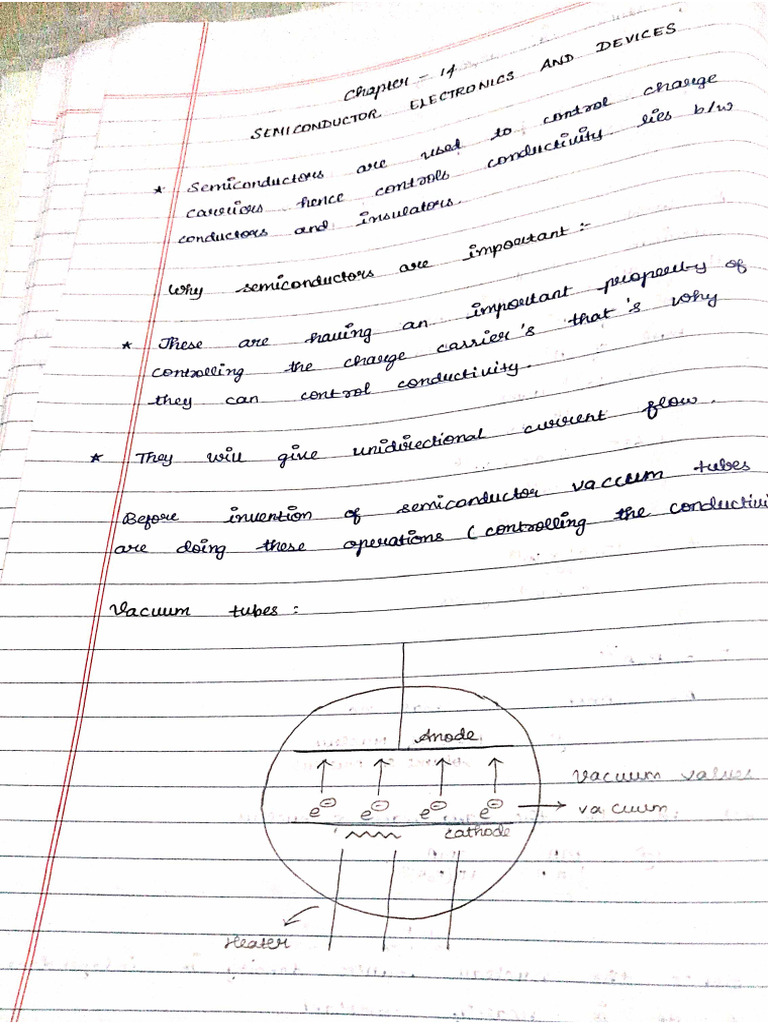 Chapter - 14
SEMICONDUCTOR ELECTRONICS AND DEVICES
* Semiconductors are used to control charge
carriors hence controls conductivity lies b/w
conductors and insulators.
Why semiconductors are important :-
* These are having an important property of
controlling the charge carrier's that's why
they can control conductivity.
* They will give unidirectional current flow.
Before invention of semiconductor vaccum tubes
are doing these operations (controlling the conductivi
Vacuum tubes :
Anode
vacuum values
e⊖ e⊖ e⊖ e⊖ → vacuum
cathode
Heater